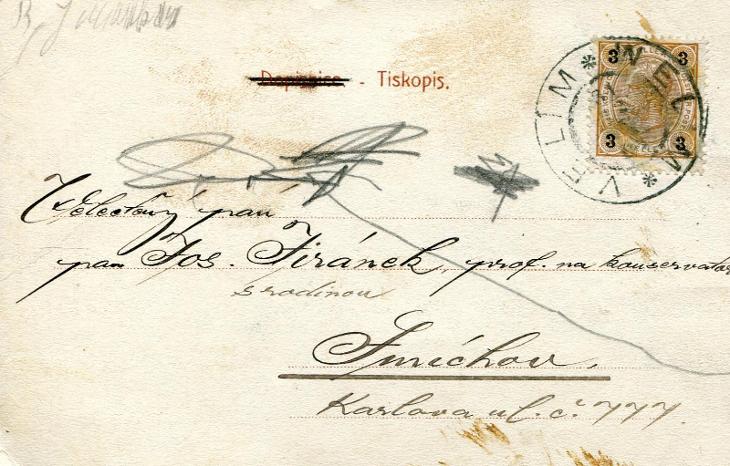 Dopisnice - Tiskopis.
3 3
3 3
VELIM * WELIM *
Velectěný pan
pan Jos. Jiránek, prof. na konservator
s rodinou
Smíchov,
Karlova ul. č. 777.